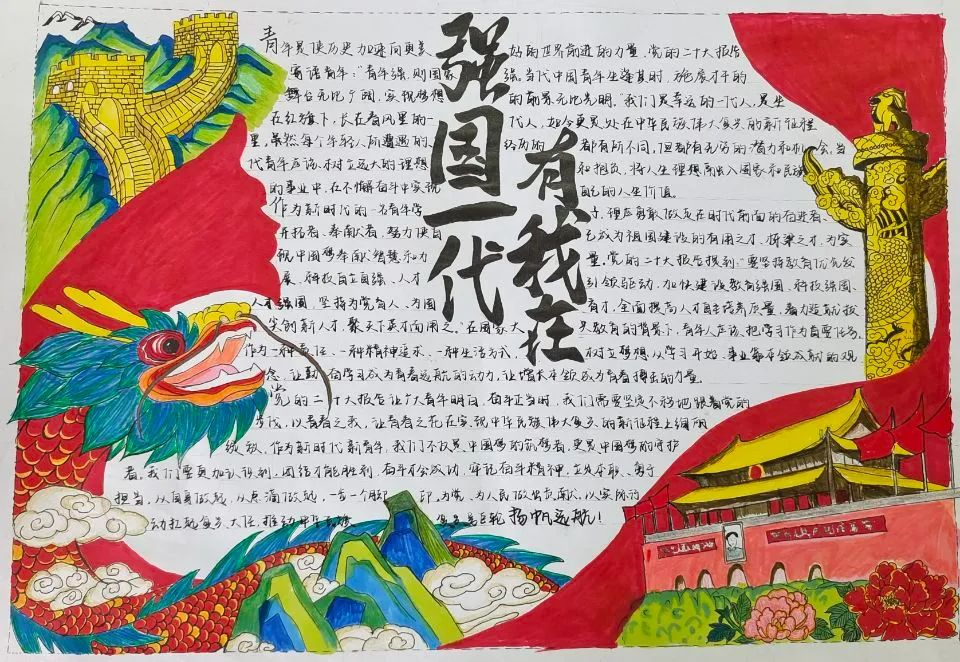 强国一代
有我在
青年是使历史加速向更美好的世界前进的力量。党的二十大报告
寄语青年：“青年强，则国家强。当代中国青年生逢其时，施展才干的
舞台无比广阔，实现梦想的前景无比光明。”我们是幸运的一代人，是生
在红旗下，长在春风里的一代人，如今更是处在中华民族伟大复兴的新征程
里。虽然每个年轻人所遭遇的经历的都有所不同，但都有无穷的潜力和机会。当
代青年应该树立远大的理想和担负，将人生理想融入国家和民族
的事业中，在不懈奋斗中实现自己的人生价值。
作为新时代的一名青年学子，理应勇敢做走在时代前面的奋进者、
开拓者、奉献者，努力使自己成为祖国建设的有用之才、栋梁之才，为实
现中国梦奉献智慧和力量。党的二十大报告提到：“要坚持教育优先发
展、科技自立自强、人才引领驱动，加快建设教育强国、科技强国、
人才强国，坚持为党育人、为国育才，全面提高人才自主培养质量，着力造就拔
尖创新人才，聚天下英才而用之。”在国家大兴教育的背景下，青年人应该把学习作为首要任务，
作为一种责任、一种精神追求、一种生活方式，树立梦想从学习开始、事业靠本领成就的观
念，让勤奋学习成为青春远航的动力，让增长本领成为青春搏击的力量。
党的二十大报告让广大青年明白，奋斗正当时，我们需要坚定不移地跟着党的
步伐，以青春之我，让青春之花在实现中华民族伟大复兴的新征程上绚丽
绽放。作为新时代新青年，我们不仅是中国梦的筑梦者，更是中国梦的守护
者。我们要更加认识到，团结才能胜利，奋斗才会成功，牢记奋斗精神，立足本职、勇于
担当，从自身做起，从点滴做起，一步一个脚印，为党、为人民做出贡献，以实际行
动扛起复兴大任，推动中华民族复兴号巨轮扬帆远航！